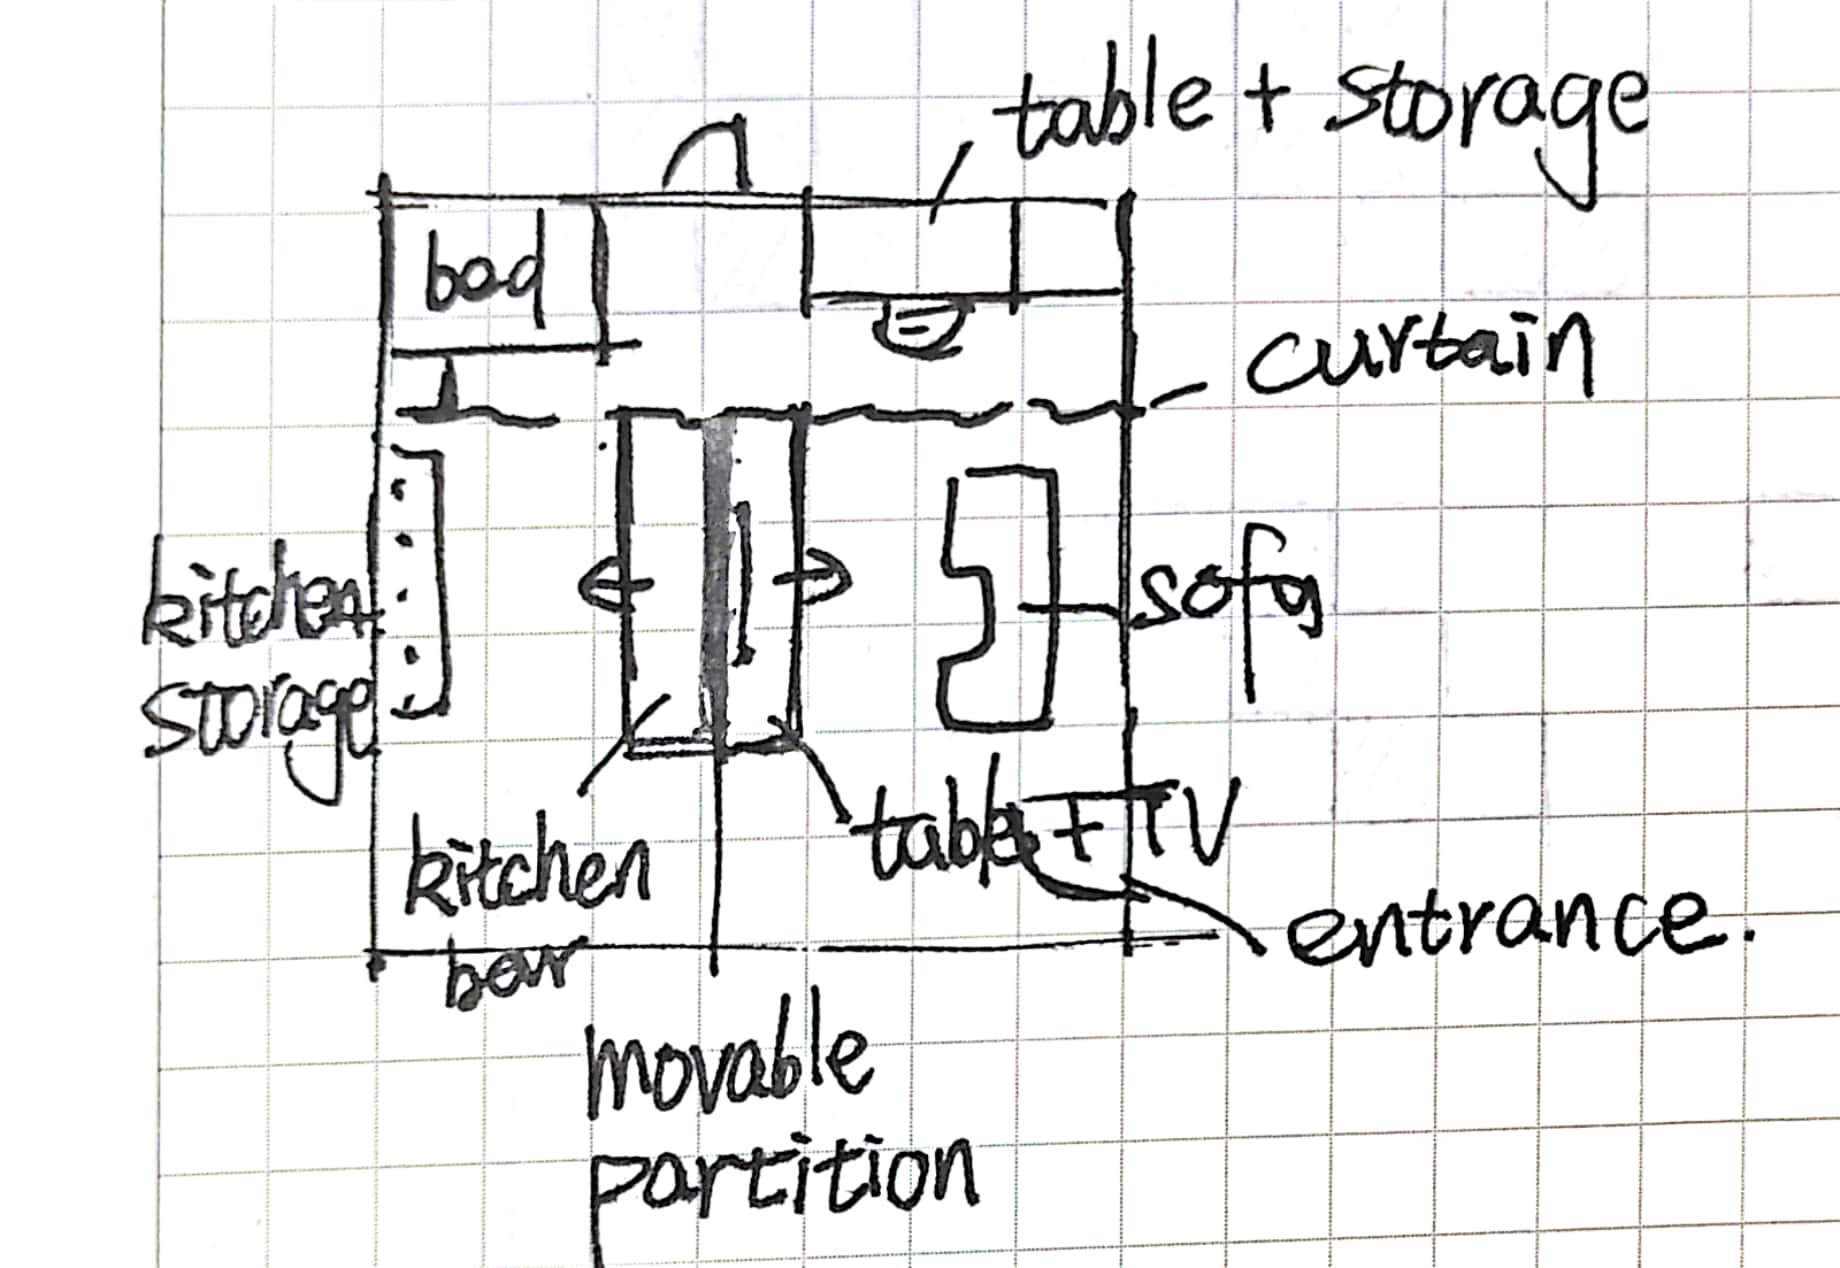 table + storage
bed
curtain
kitchen
storage
sofa
kitchen
bar
table + TV
entrance.
movable
partition